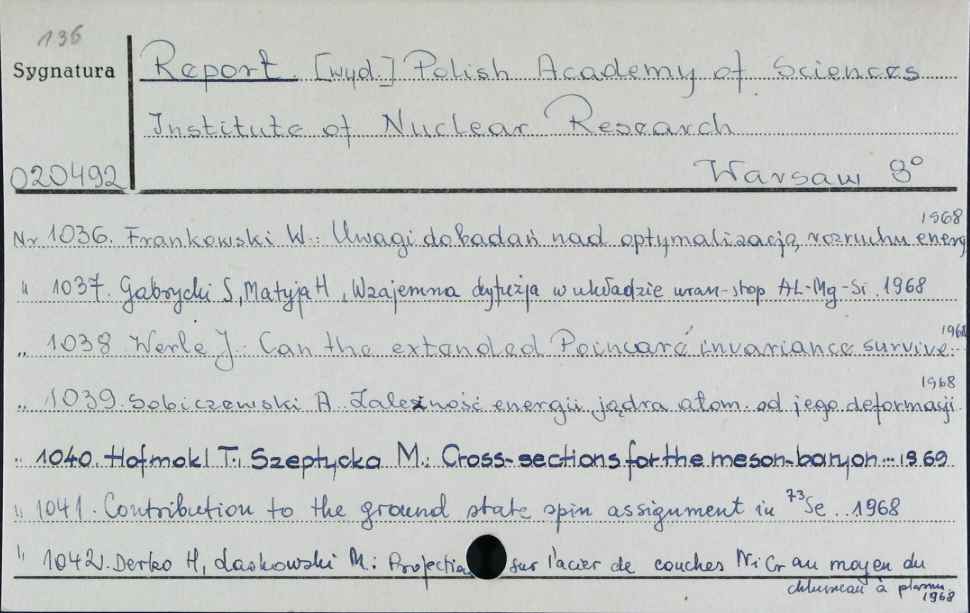 136
Sygnatura
Report [wyd.] Polish Academy of Sciences
Institute of Nuclear Research
020492
Warsaw 8°
1968
Nr 1036. Frankowski W.: Uwagi do badań nad optymalizacją rozruchu energ
" 1037. Gabrycki S, Matyja H, Wzajemna dyfuzja w układzie uran-stop AL-Mg-Si. 1968
1968
" 1038 Werle J. Can the extended Poincaré invariance survive...
1968
" 1039. Sobiczewski A. Zależność energii jądra atom. od jego deformacji
" 1040. Hofmokl T., Szeptycka M.: Cross-sections for the meson-baryon... 1969
" 1041. Contribution to the ground state spin assignment in ⁷³Se.. 1968
" 1042. Derko H, Laskowski M.: Projection sur l'acier de couches NiCr au moyen du
chlumeau à plasma
1968